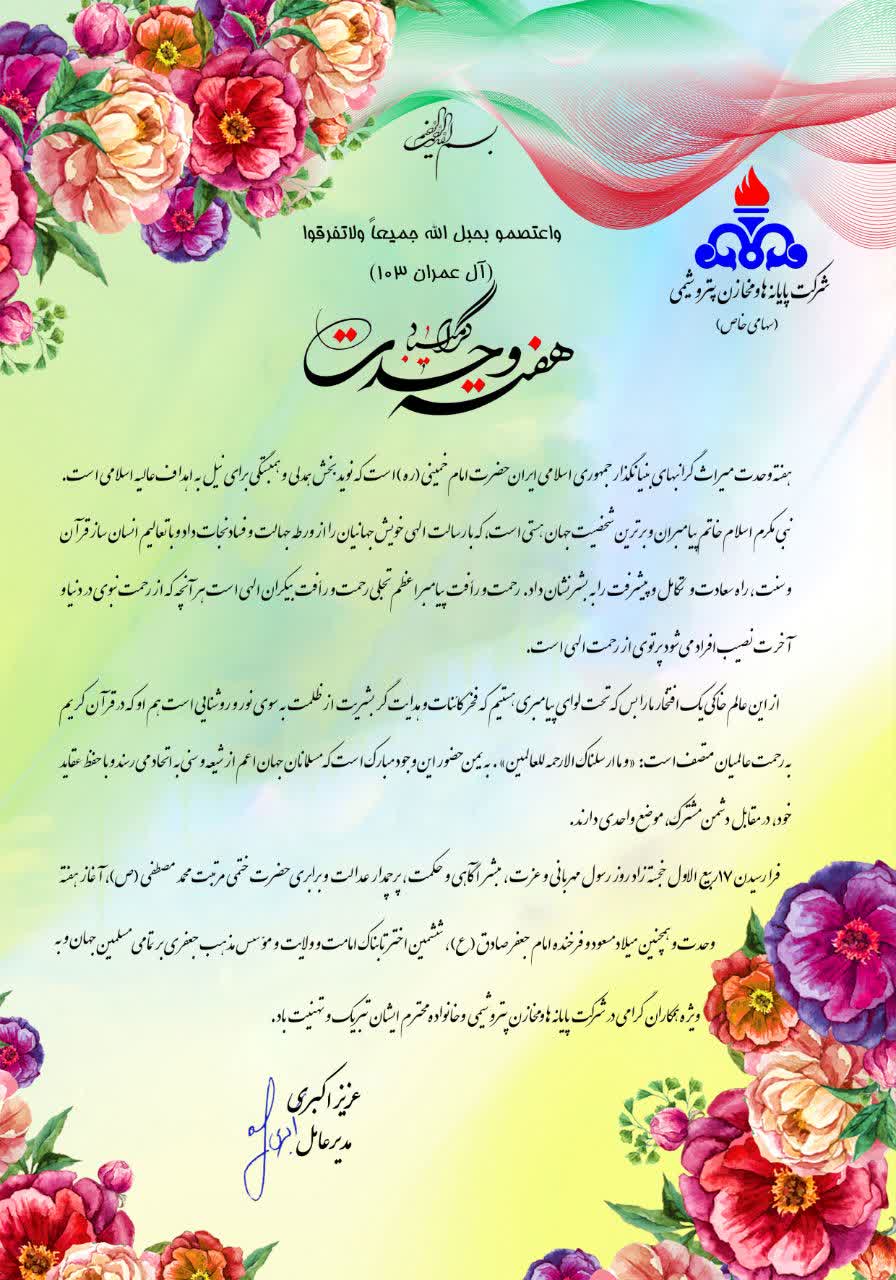 بسم الله الرحمن الرحیم
واعتصمو بحبل الله جمیعاً ولاتفرقوا
(آل عمران ۱۰۳)
شرکت پایانه ها و مخازن پتروشیمی
(سهامی خاص)
هفته وحدت گرامیباد
هفته وحدت میراث گرانبهای بنیانگذار جمهوری اسلامی ایران حضرت امام خمینی (ره) است که نوید بخش همدلی و همبستگی برای نیل به اهداف عالیه اسلامی است.
نبی مکرم اسلام خاتم پیامبران و برترین شخصیت جهان هستی است، که با رسالت الهی خویش جهانیان را از ورطه جهالت و فساد نجات داد و با تعالیم انسان ساز قرآن
و سنت، راه سعادت و تکامل و پیشرفت را به بشر نشان داد. رحمت و رأفت پیامبر اعظم تجلی رحمت و رأفت بیکران الهی است هر آنچه که از رحمت نبوی در دنیا و
آخرت نصیب افراد می شود پرتوی از رحمت الهی است.
از این عالم خاکی یک افتخار ما را بس که تحت لوای پیامبری هستیم که فخر کائنات و هدایت گر بشریت از ظلمت به سوی نور و روشنایی است هم او که در قرآن کریم
به رحمت عالمیان متصف است: «و ما ارسلناک الا رحمه للعالمین». به یمن حضور این وجود مبارک است که مسلمانان جهان اعم از شیعه و سنی به اتحاد می رسند و با حفظ عقاید
خود، در مقابل دشمن مشترک، موضع واحدی دارند.
فرا رسیدن ۱۷ ربیع الاول خجسته زاد روز رسول مهربانی و عزت، مبشر آگاهی و حکمت، پرچمدار عدالت و برابری حضرت ختمی مرتبت محمد مصطفی (ص)، آغاز هفته
وحدت و همچنین میلاد مسعود و فرخنده امام جعفر صادق (ع)، ششمین اختر تابناک امامت و ولایت و مؤسس مذهب جعفری بر تمامی مسلمین جهان و به
ویژه همکاران گرامی در شرکت پایانه ها و مخازن پتروشیمی و خانواده محترم ایشان تبریک و تهنیت باد.
عزیز اکبری
مدیر عامل